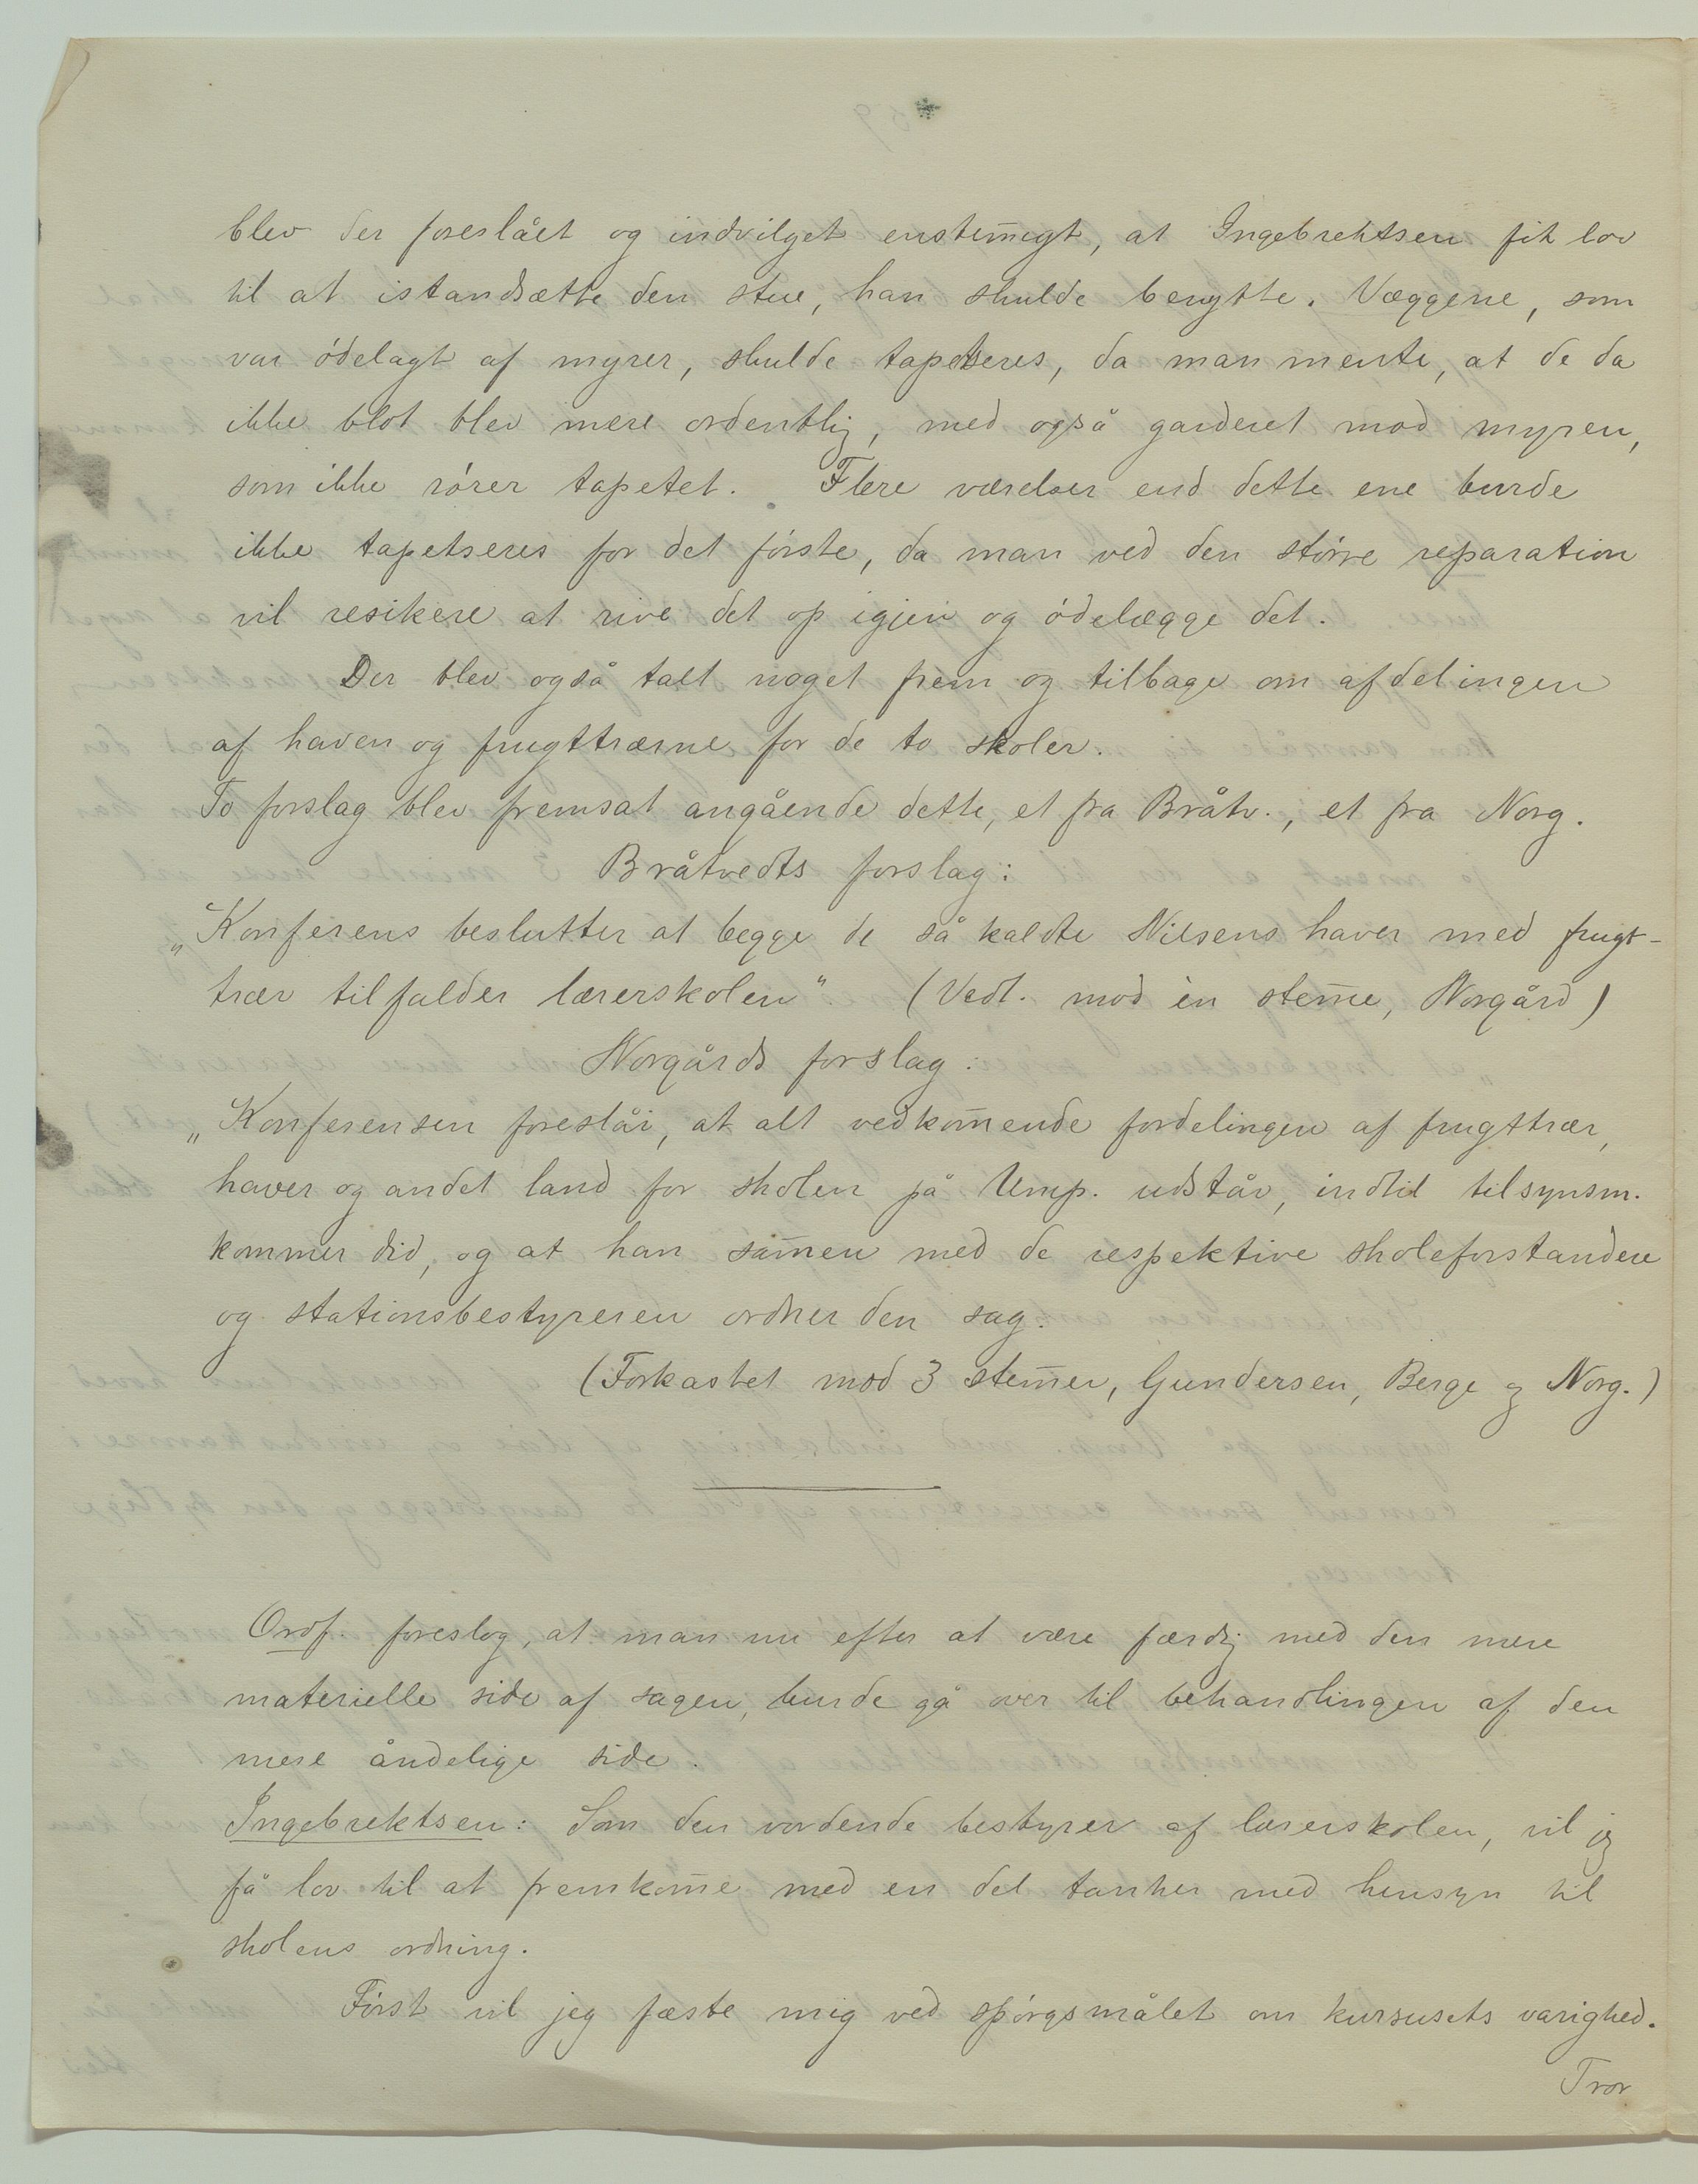 blev der foreslået og indvilget enstem̄igt, at Ingebrektsen fik lov
til at istandsætte den stue, han skulde benytte. Væggene, som
var ódelagt af myrer, skulde tapetseres, da man mente, at de da
ikke blot blev mere ordentlig, med også garderet mod myren,
som ikke rórer tapetet. Flere værelser end dette ene burde
ikke tapetseres for det fórste, da man ved den stórre reparation
vil resikere at rive det op igjen og ódelægge det.
Der blev også talt noget frem og tilbage om afdelingen
af haven og frugttræerne for de to skoler.
To forslag blev fremsat angående dette, et fra Bråtv., et fra Norg.
Bråtvedts forslag:
„Konferens beslutter at begge de så kaldte Nilsens haver med frugt-
trær tilfalder lærerskolen“. (Vedt. mod èn stem̄e, Norgård)
Norgårds forslag:
„Konferensen foreslår, at alt vedkom̄ende fordelingen af frugttrær,
haver og andet land for skolen på Ump. udstår, indtil tilsynsm.
kommer did, og at han sam̄en med de respektive skoleforstandere
og stationsbestyreren ordner den sag.
(Forkastet mod 3 stem̄er, Gundersen, Berge og Norg.)
Ordf. foreslog, at man nu efter at være færdig med den mere
materielle side af sagen, burde gå over til behandlingen af den
mere åndelige side.
Ingebrektsen: Som den vordende bestyrer af lærerskolen, vil jeg
få lov til at fremkom̄e med en del tanker med hensyn til
skolens ordning.
Fórst vil jeg fæste mig ved spórgsmålet om kursusets varighed.
Tror